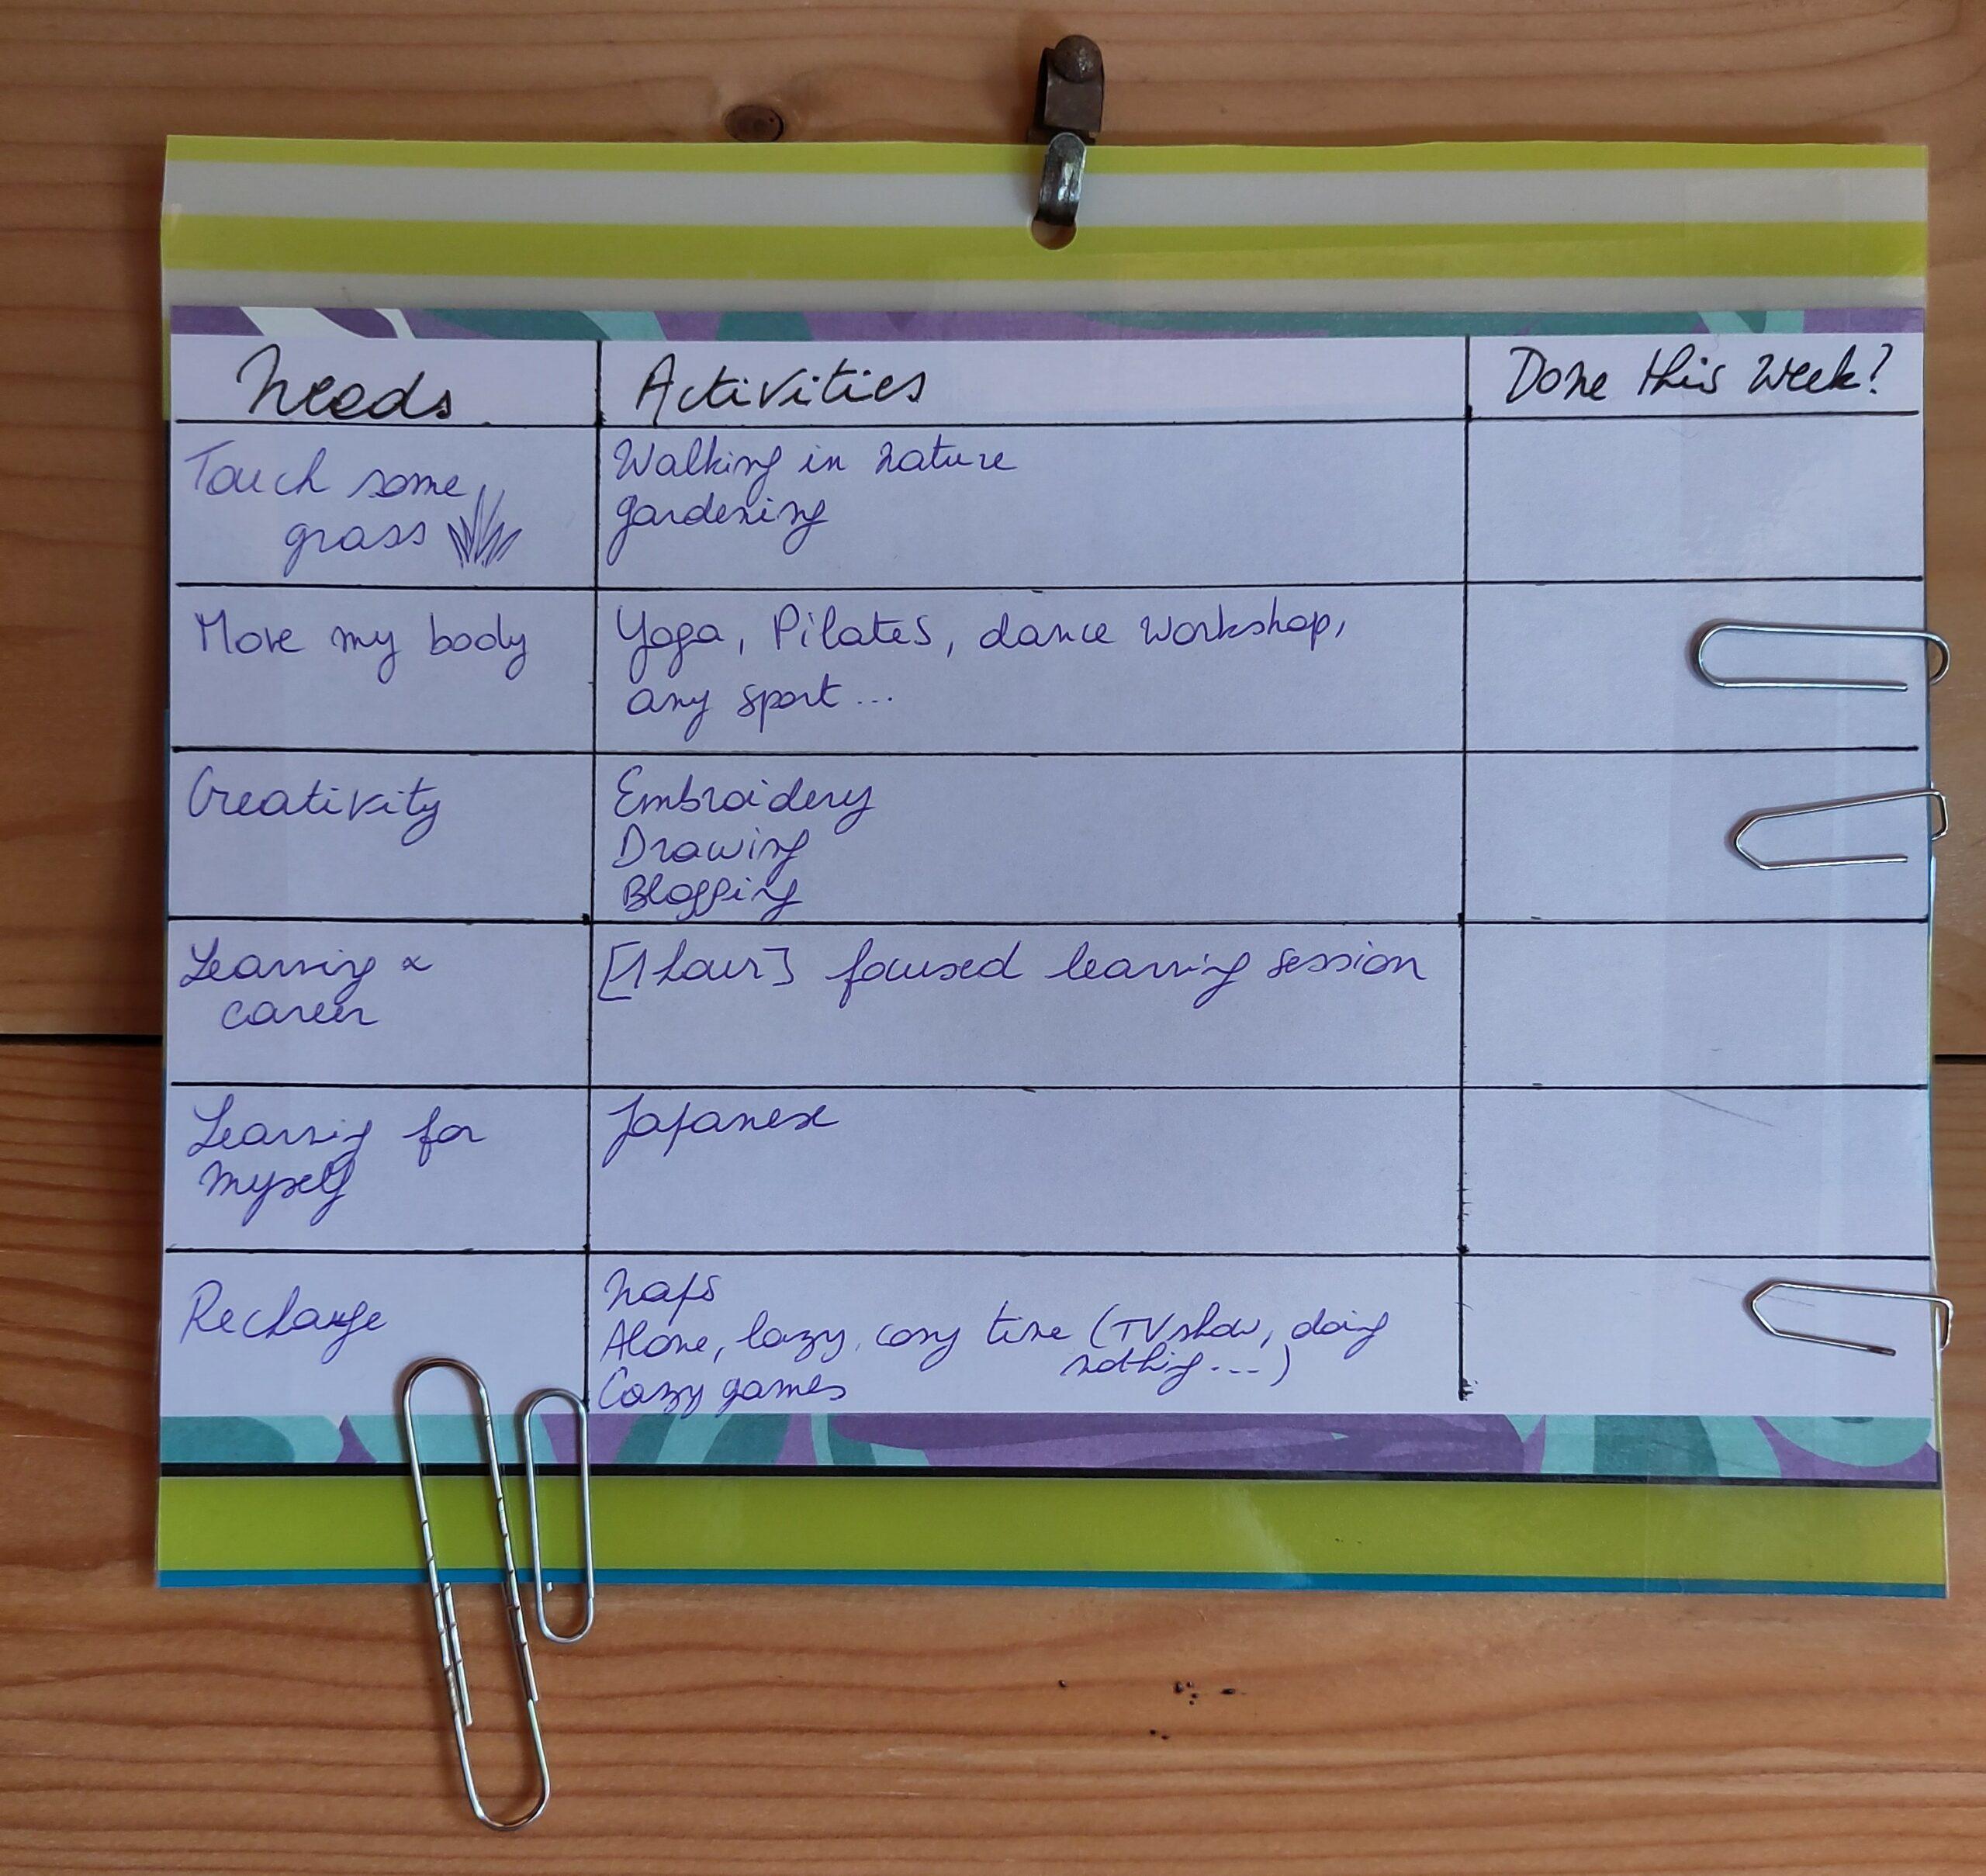 Needs
Activities
Done this week?
Touch some
grass
Walking in nature
gardening
Move my body
Yoga, Pilates, dance workshop,
any sport...
Creativity
Embroidery
Drawing
Blogging
Learning &
career
[1 hour] focused learning session
Learning for
myself
Japanese
Recharge
Naps
Alone, lazy, cosy time (TV show, doing
nothing...)
Cozy games